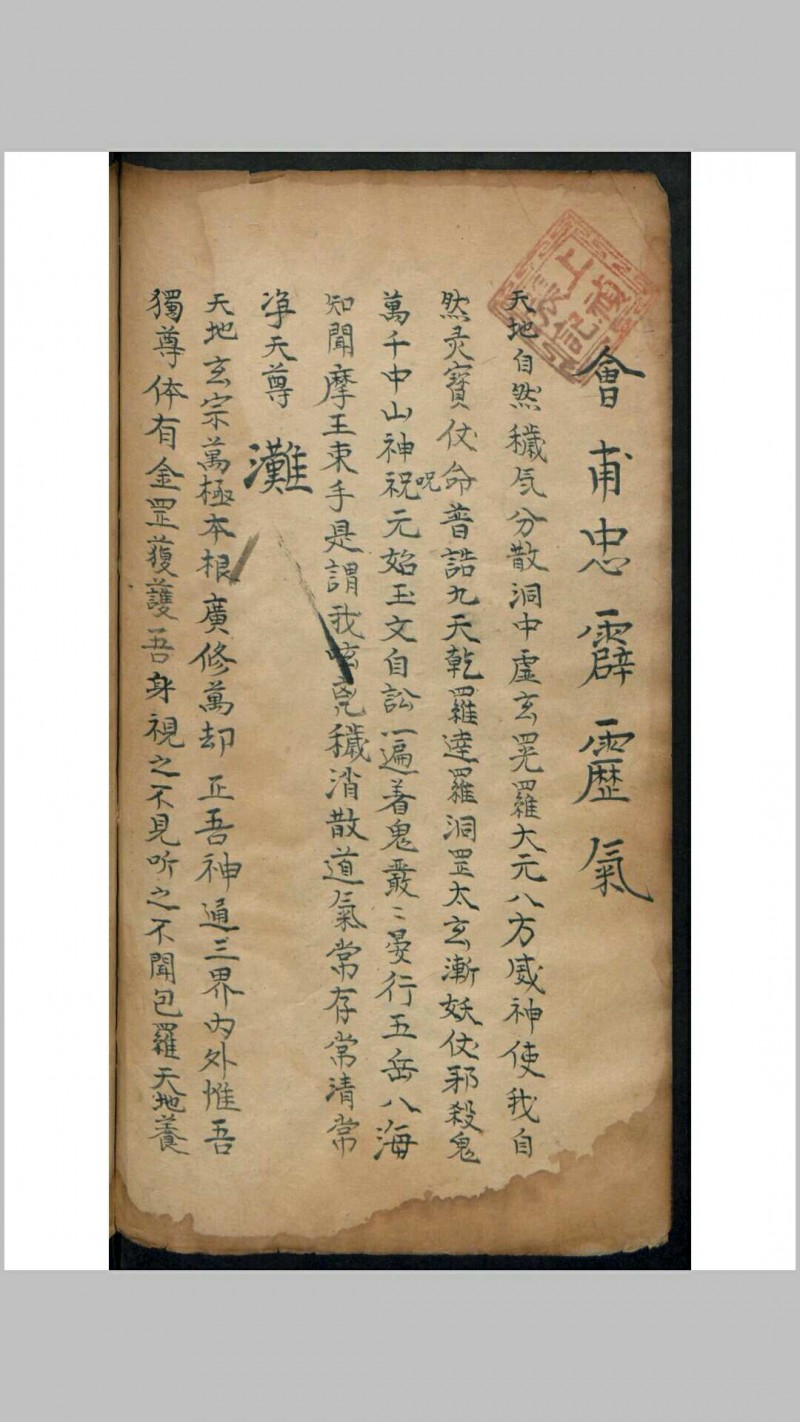 會甫忠霹靂氣
天地自然穢気分散洞中虛玄晃羅大元八方威神使我自
然灵寶仗命普誥九天乾羅達羅洞罡太玄漸妖伏邪殺鬼
萬千中山神祝呪元始玉文自訟一遍著鬼叢〻晏行五岳八海
知聞摩王束手是謂我兇穢消散道氣常存常清常
凈天尊 灘
天地玄宗萬極本根廣修萬却正吾神通三界內外惟吾
獨尊体有金罡蕧護吾身視之不見听之不聞包羅天地養